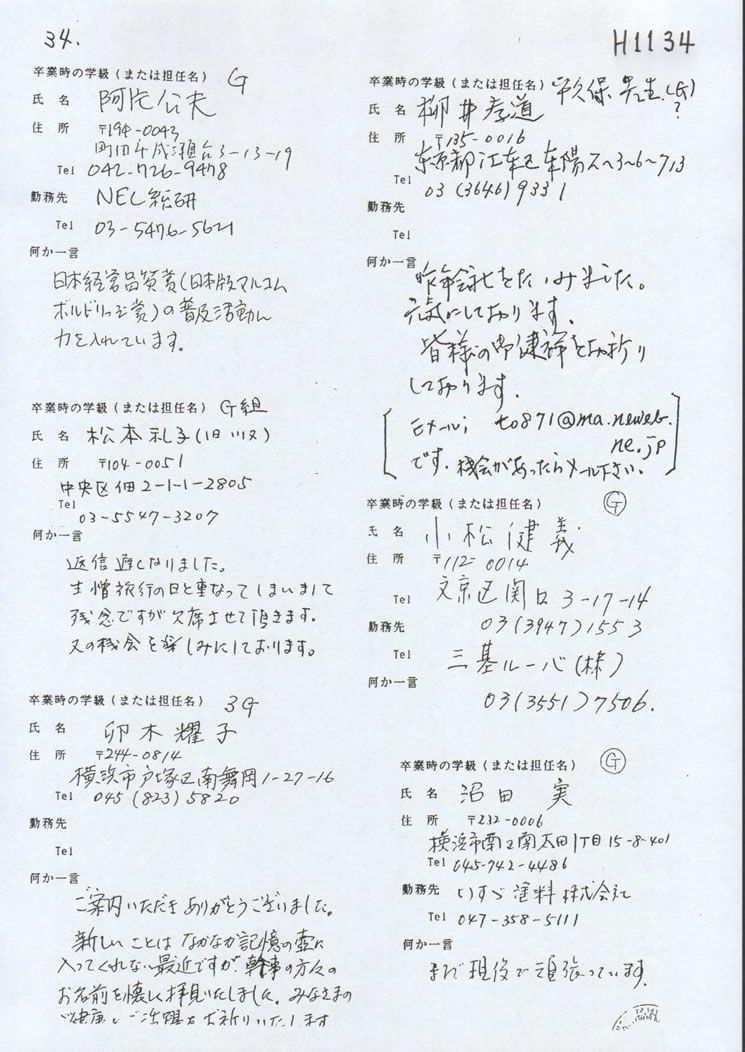 34.
H11 34
卒業時の学級(または担任名) G
氏 名 阿片公夫
住 所 〒194-0043
町田市成瀬台3-13-19
Tel 042-726-9478
勤務先 NEC総研
Tel 03-5476-5621
何か一言
日本経営品質賞(日本版マルコム
ボルドリッジ賞)の普及活動に
力を入れています。
卒業時の学級(または担任名) G組
氏 名 松本礼子(旧
住 所 〒104-0051
中央区佃2-1-1-2805
Tel
03-5547-3207
何か一言
返信遅くなりました。
生憎旅行の日と重なってしまいまして
残念ですが欠席させて頂きます.
又の機会を楽しみにしております。
卒業時の学級(または担任名) 3G
氏 名 卯木耀子
住 所 〒244-0814
横浜市戸塚区南舞岡1-27-16
Tel 045(823)5820
勤務先
Tel
何か一言
ご案内いただき ありがとうございました。
新しいことは なかなか記憶の壺に
入ってくれない最近ですが、幹事の方々の
お名前を懐しく拝見いたしました。みなさまの
ご健康と ご活躍をお祈りいたします
卒業時の学級(または担任名) 平久保先生.(G)
?
氏 名 柳井孝道
住 所 〒135-0016
東京都江東区東陽 3-6-713
Tel 03(3646)9331
勤務先
Tel
何か一言
昨年会社をたいみました。
元気にしております.
皆様の御健祥をお祈り
しております.
Eメール; to871@ma.neweb.
ne.jp
です. 機会があったらメール下さい.
卒業時の学級(または担任名) G
氏 名 小松健義
住 所 〒112-0014
文京区関口 3-17-14
Tel
勤務先 03(3947)1553
Tel 三基ルーバ(株)
何か一言
03(3551)7506.
卒業時の学級(または担任名) G
氏 名 沼田 実
住 所 〒232-0006
横浜市南区南太田1丁目15-8-401
Tel 045-742-4486
勤務先 いすゞ塗料株式会社
Tel 047-358-5111
何か一言
まだ現役で頑張っています.